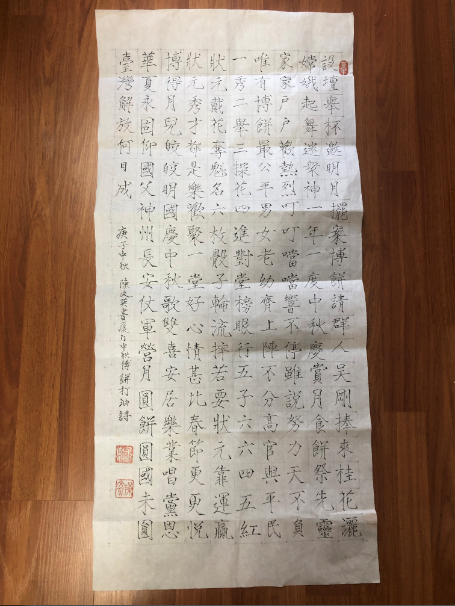 設壇舉杯邀明月擺案博餅請群人吳剛捧來桂花灑
嫦娥起舞迷眾神一年一度中秋慶賞月食餅祭先靈
家家戶戶熱烈叮叮噹噹響不停雖說努力天不負
唯有博餅最公平男女老幼齊上陣不分高官與平民
一秀二舉三探花四進對堂榜眼行五子六六四五紅
狀元戴花奪魁名六枚骰子輪流擇若要狀元靠運贏
狀元秀才都是樂歡聚一堂好心情甚比春節更更悅
博得月兒皎皎明國慶中秋歌雙喜安居樂業唱黨恩
華夏永固仰國父神州長安仗軍營月圓餅圓國未圓
臺灣解放何日成
庚子中秋 陳文英書廈門中秋博餅打油詩